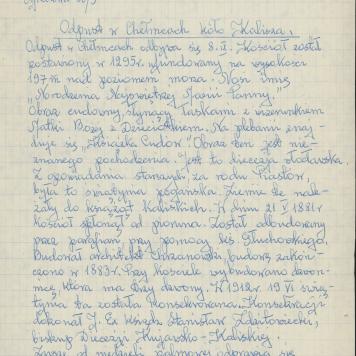 Odpust w Chełmcach koło Kalisza.
Odpust w Chełmcach odbywa się 8.IX. Kościół został
postawiony w 1295r. ufundowany na wysokości
197 m nad poziomem morza. Nosi imię
"Narodzenia Najświętszej Marii Panny."
Obraz cudowny, słynący łaskami z wizerunkiem
Matki Bożej z Dzieciątkiem. Na plebani znaj
duje się "Książka Cudów". Obraz ten jest nie-
znanego pochodzenia. Jest to diecezja włocławska.
Z opowiadania starszych, za rodu Piastów,
była to świątynia pogańska. Ziemie te nale-
żały do książąt Kaliskich. W dniu 21 V 1881r
kościół spłonął od pioruna. Został odbudowany
przez parafian przy pomocy ks. Głuchowskiego.
Budował architekt Chrzanowski, budowę zakoń-
czono w 1883r. Przy kościele wybudowano dzwon-
nicę, która ma trzy dzwony. W 1912r 19 VI świą-
tynia ta została konsekrowana. Konsekracji
dokonał J. Ex ksiądz Stanisław Zdzitowiecki,
biskup Diecezji Kujawsko-Kaliskiej.
Zawsze od niedzieli palmowej odprawia się